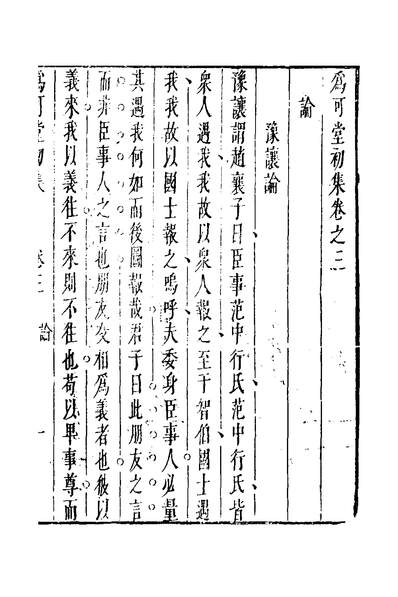 為可堂初集卷之三
論
豫讓論
豫讓謂趙襄子曰臣事范中行氏范中行氏皆
衆人遇我我故以衆人報之至于智伯國士遇
我我故以國士報之嗚呼夫委身臣事人必量
其遇我何如而後圖報哉君子曰此朋友之言
而非臣事人之言也朋友交相為義者也彼以
義來我以義往不來則不往也苟以畢事尊而
為可堂初集 卷三 論 一